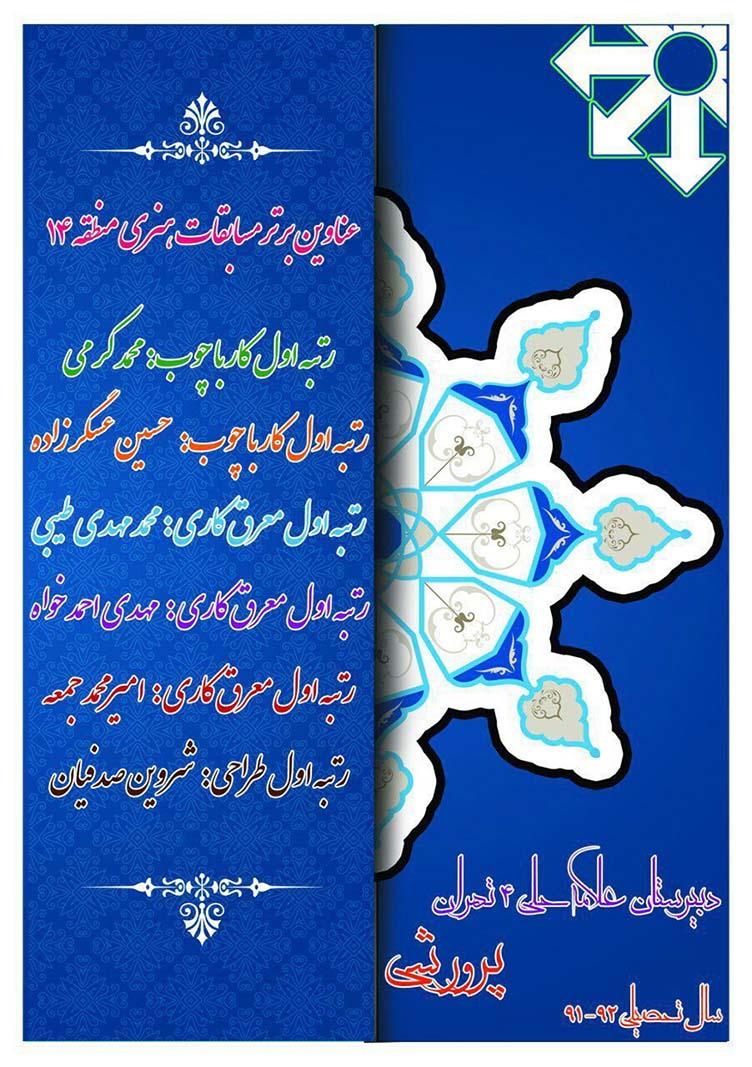 عناوین برتر مسابقات هنری منطقه ۱۴
رتبه اول کار با چوب: محمد کرمی
رتبه اول کار با چوب: حسین عسگر زاده
رتبه اول معرق کاری: محمد مهدی طیبی
رتبه اول معرق کاری: مهدی احمد خواه
رتبه اول معرق کاری: امیر محمد جمعه
رتبه اول طراحی: شروین صدفیان
دبیرستان علامه حلی ۴ تهران
پرورشی
سال تحصیلی ۹۲-۹۱